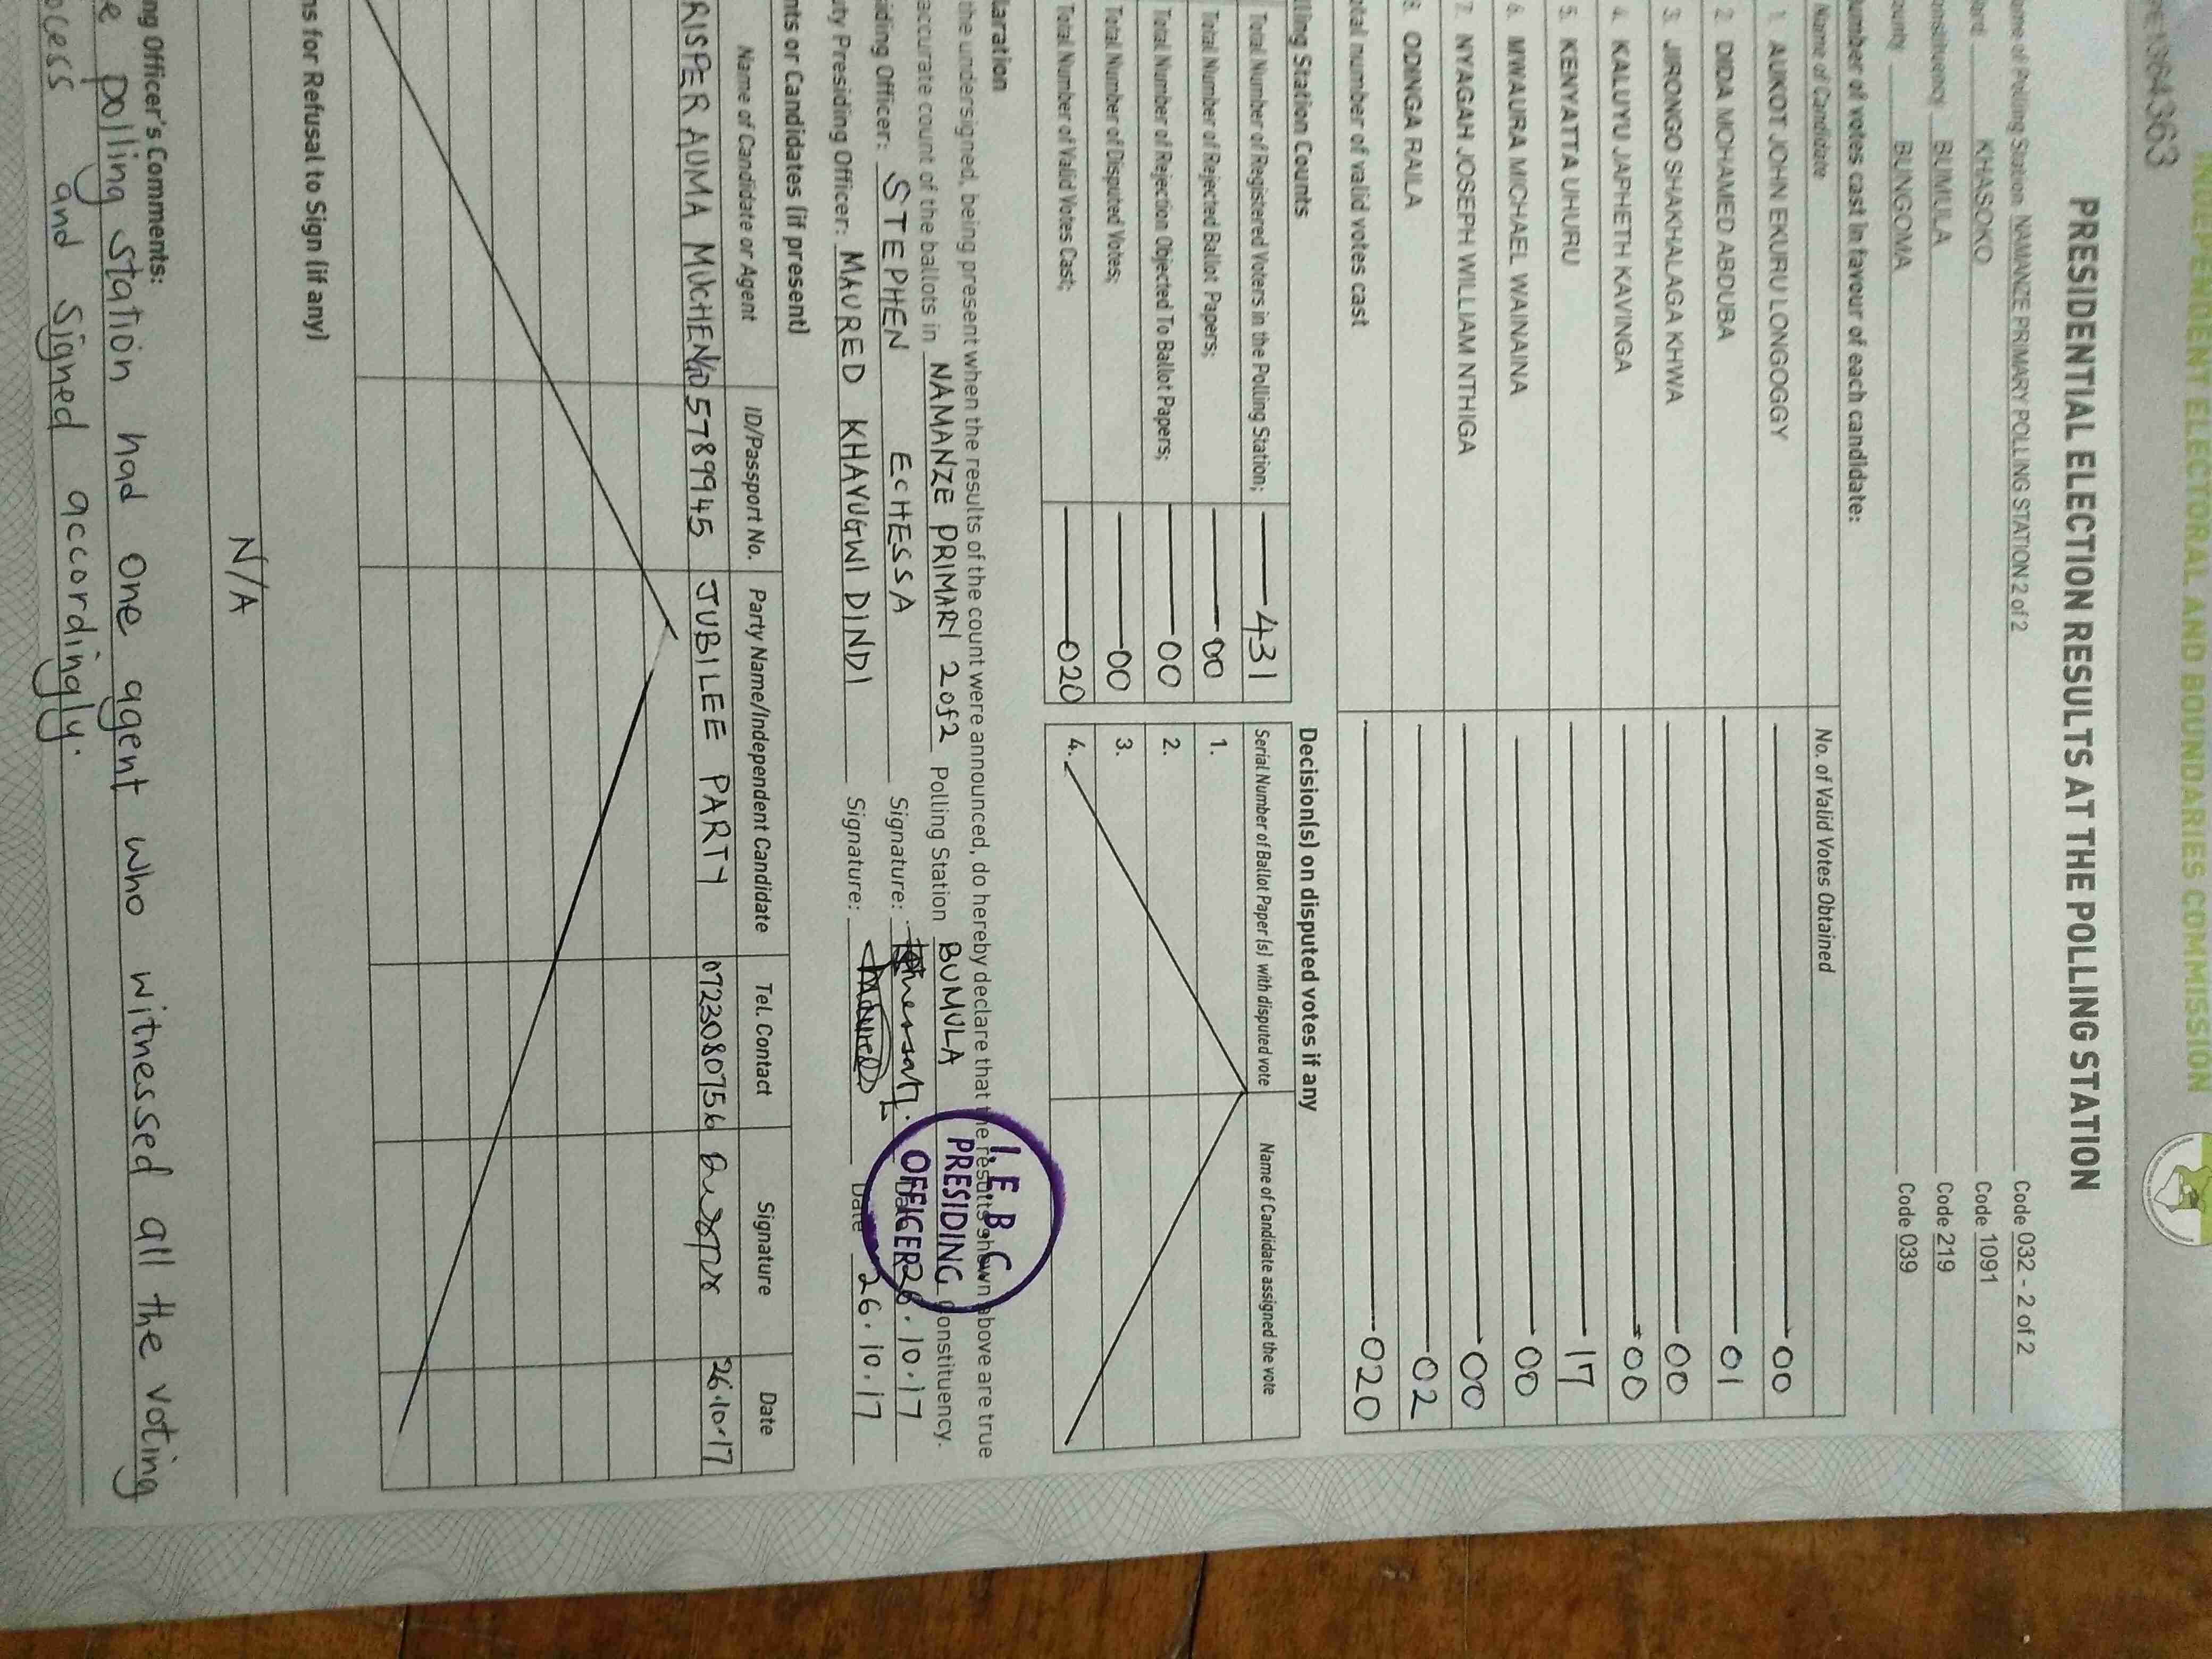 INDEPENDENT ELECTORAL AND BOUNDARIES COMMISSION
364363
PRESIDENTIAL ELECTION RESULTS AT THE POLLING STATION
ame of Polling Station NAMANZE PRIMARY POLLING STATION 2 of 2 Code 032 - 2 of 2
ard KHASOKO Code 1091
onstituency BUMULA Code 219
ounty BUNGOMA Code 039
umber of votes cast in favour of each candidate:
Name of Candidate No. of Valid Votes Obtained
1. AUKOT JOHN EKURU LONGOGGY 00
2. DIDA MOHAMED ABDUBA 01
3. JIRONGO SHAKHALAGA KHWA 00
4. KALUYU JAPHETH KAVINGA 00
5. KENYATTA UHURU 17
6. MWAURA MICHAEL WAINAINA 00
7. NYAGAH JOSEPH WILLIAM NTHIGA 00
8. ODINGA RAILA 02
otal number of valid votes cast 020
lling Station Counts
Total Number of Registered Voters in the Polling Station; 431
Total Number of Rejected Ballot Papers; 00
Total Number of Rejection Objected To Ballot Papers; 00
Total Number of Disputed Votes; 00
Total Number of Valid Votes Cast; 020
Decision(s) on disputed votes if any
Serial Number of Ballot Paper (s) with disputed vote Name of Candidate assigned the vote
1.
2.
3.
4.
laration
the undersigned, being present when the results of the count were announced, do hereby declare that the results shown above are true
accurate count of the ballots in NAMANZE PRIMARY 2 of 2 Polling Station BUMULA Constituency.
iding Officer: STEPHEN ECHESSA Signature: 26.10.17
uty Presiding Officer: MAURED KHAYUGWI DINDI Signature: Maured Date 26.10.17
I.E.B.C
PRESIDING
OFFICER
nts or Candidates (if present)
Name of Candidate or Agent ID/Passport No. Party Name/Independent Candidate Tel. Contact Signature Date
RISPER AUMA MUCHENDO 5789945 JUBILEE PARTY 0723080756 26.10.17
ns for Refusal to Sign (if any)
N/A
ng Officer's Comments:
e polling station had one agent who witnessed all the voting
ocess and signed accordingly.